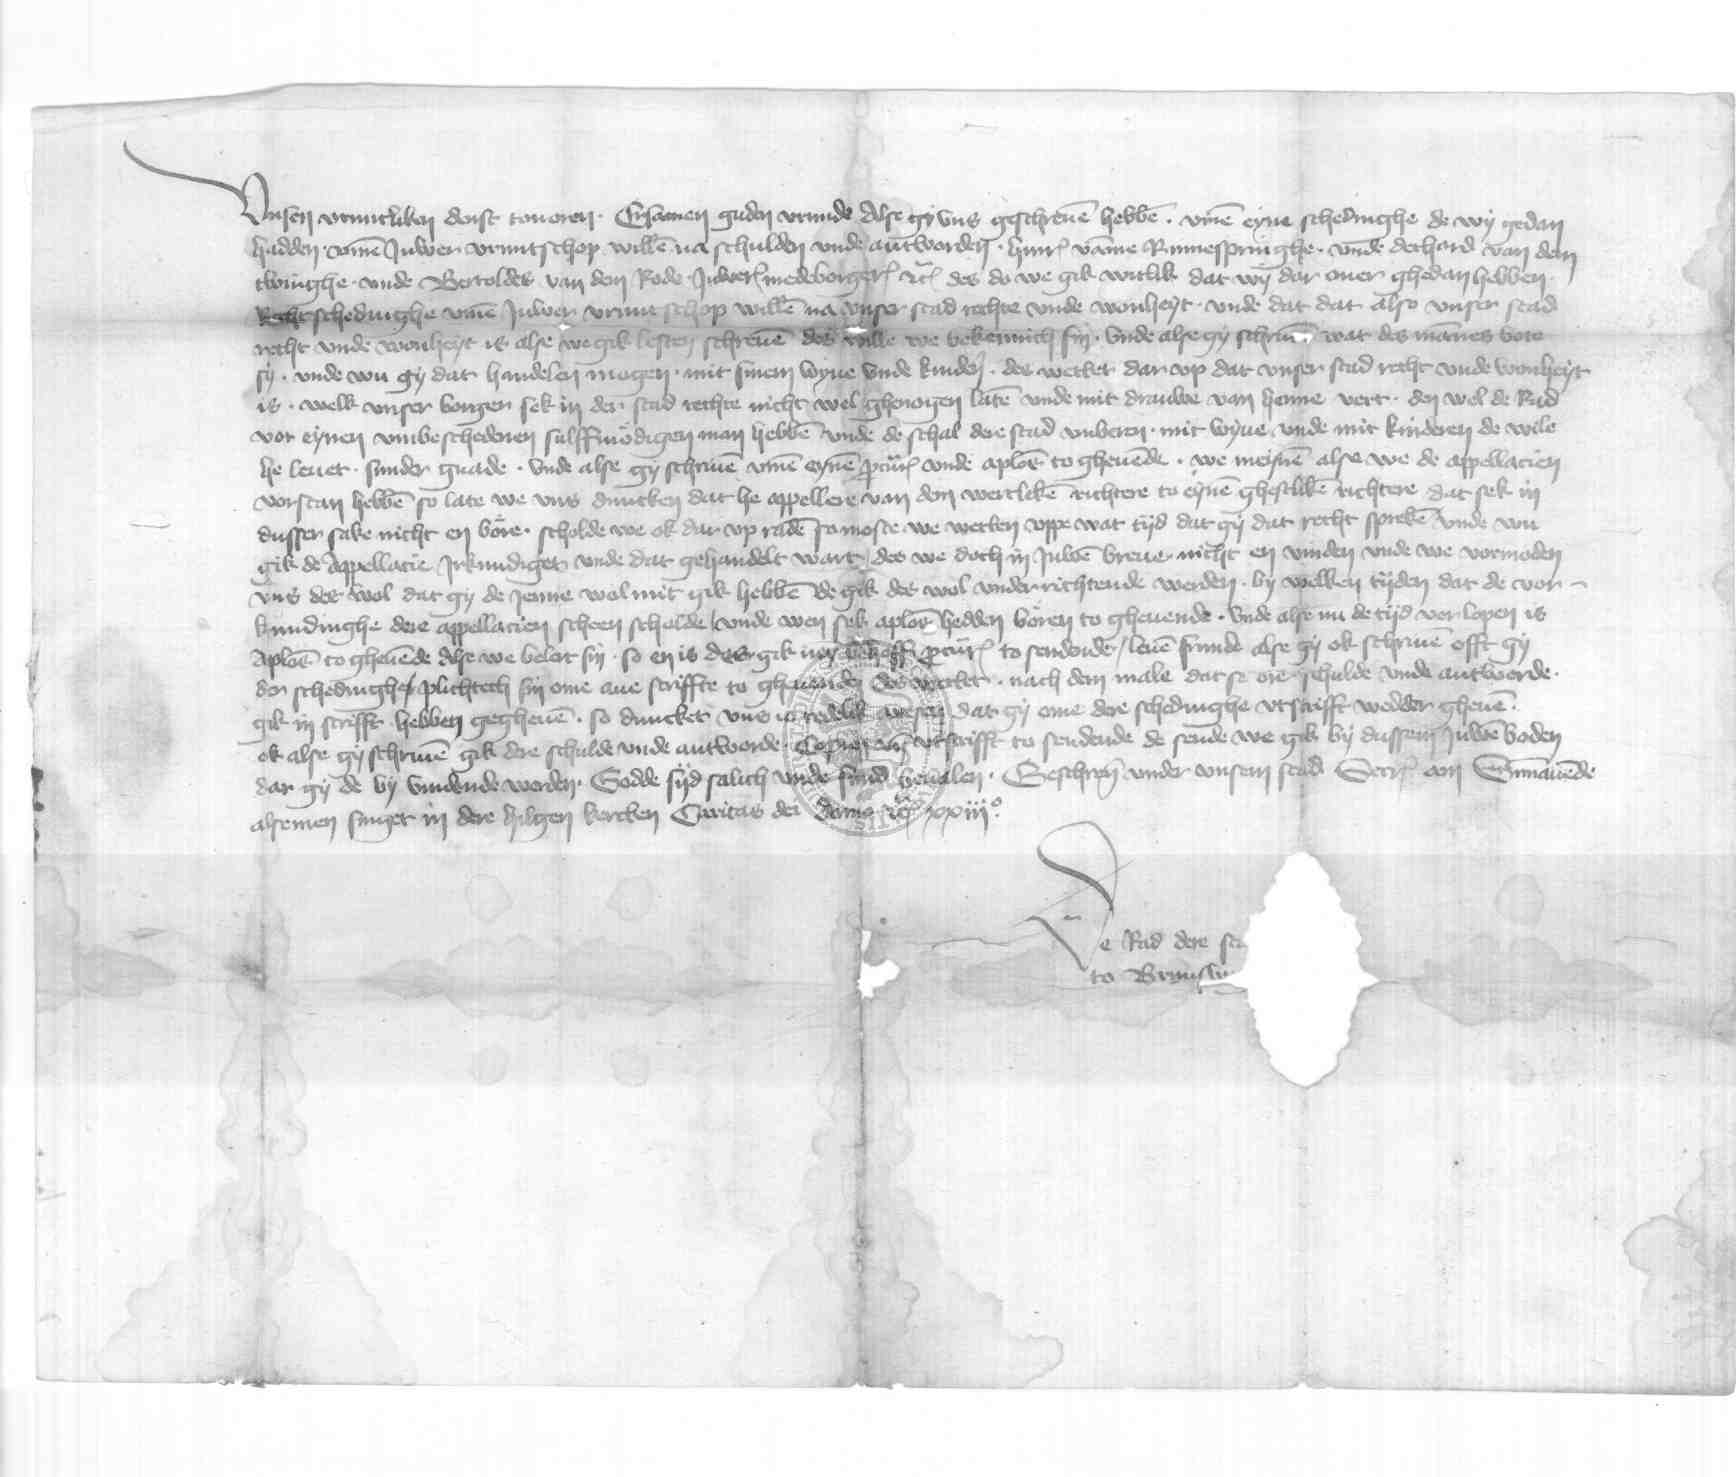 Vnsen vruntliken denst touoren. Ersamen guden vrunde Alse gy vns geschreuē hebbē. vmē eyne schedinghe de wy gedan
hadden vmē Juwer vruntschop willē na schulden vnde antworden. hinr̄ vāme Rinnesspringhe. vnde dethard van dem
twinghe. vnde Bertoldes van dem Rode Juwer̄ medeborger̄ ꝛc̄ des do we gik witlik dat wy dar ouer ghedan hebben.
Rechtschedinghe vmē Juwer vruntschop willē na vnser stad rechte vnde wonheyt. vnde dat dat also vnser stad
recht vnde wonheyt is alse we gik lesten schreuē des wille we bekennich sin. vnde alse gy schruē wat des mānes bote
sy. vnde wu gy dat handelen mogen. mit sinem wyue vnde kinder̄. des wetet dar vp dat vnser stad recht vnde wonheyt
is. welk vnser borger sek in der stad rechte nicht wel ghenogen latē vnde mit drauwe van henne vert. den wel de Rad
vor eynen vmbeschedenen sulffmödigen man hebbē vnde de schal dere stad vnberen. mit wyue vnde mit kinderen de wile
he leuet. sunder gnade. vnde alse gy schruē vmē eynē ꝓcūr̄ vnde aplōs to gheuēde. we meynē alse we de appellacien
vorstan hebbē so late we vns duncken dat he appellere van dem wertlikē richtere to eynē ghestlikē richtere dat sek in
dusser sake nicht en böre. scholde we ok dar vp radē so moste we wetten vppe wat tijd dat gy dat recht sprekē vnde wu
gik de Appellacie Jrkundiget vnde dat gehandelt wart, des we doch in Juwē breue nicht en vinden vnde we vormoden
vns des wol dat gy de jenne wol mit gik hebbē de gik des wol vnderrichtende werden. by welken tijden dat de vor-
kundinghe dere appellacien scheen scholde vnde wen sek aplōs hedden bören to gheuende. vnde alse nu de tijd vorlopen is
Aplōs to gheuēde Alse we belert sin. so en is des gik neyn behoff ꝓcūr̄ to sendende / leuē frunde alse gy ok schruē offt gy
der schedinghe plichtech sin ome aue scriffte to gheuende des wettet. nach dem male dat se ore schulde vnde antworde.
gik in scrifft hebben gegheuē. so duncket vns is redelik wesen dat gy ome dere schedinghe vtscrifft wedder gheuē.
ok alse gy schruē gik dere schulde vnde antworde. Copien vn̄ vtscrifft to sendende de sende we gik by dussem Juwē boden
dar gy de by vindende werden. Godde sijd salich vnde sund beualen. Geschreū vnder vnsem stad Secr̄ am Sūnauēde
alse men singet in dere hilgen kercken Caritas dei Anno ꝛc̄ xxiij°.
De Rad dere sta
to Brunsw